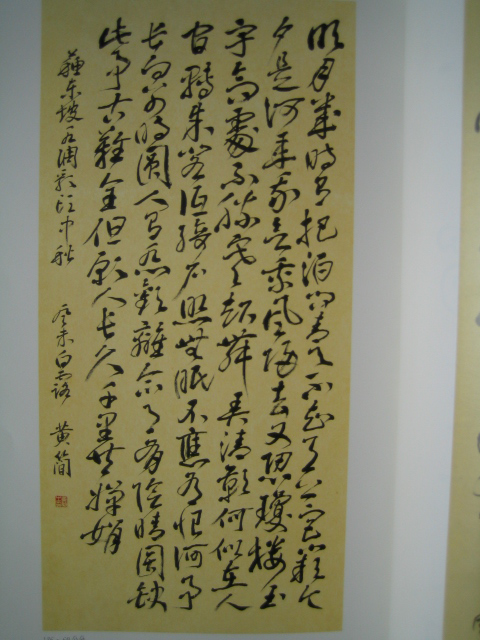 明月幾時有把酒問青天不知天上宮闕今
夕是何年我欲乘風歸去又恐瓊樓玉
宇高處不勝寒起舞弄清影何似在人
間轉朱閣低綺户照無眠不應有恨何事
長向別時圓人有悲歡離合月有陰晴圓缺
此事古難全但願人長久千里共嬋娟
蘇東坡水調歌頭中秋 癸未白露 黄簡